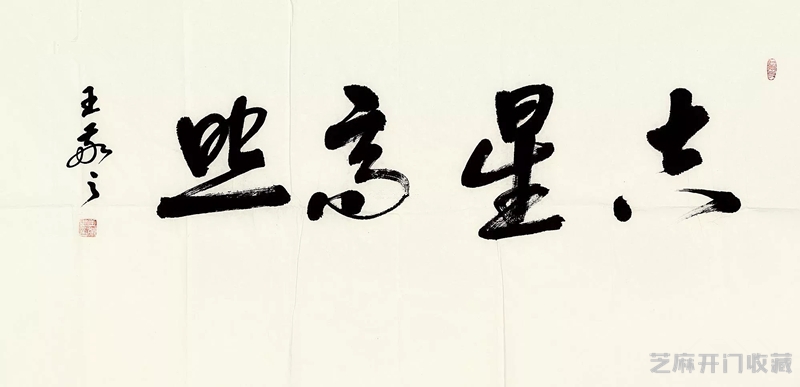 吉星高照
王
芝麻开门收藏